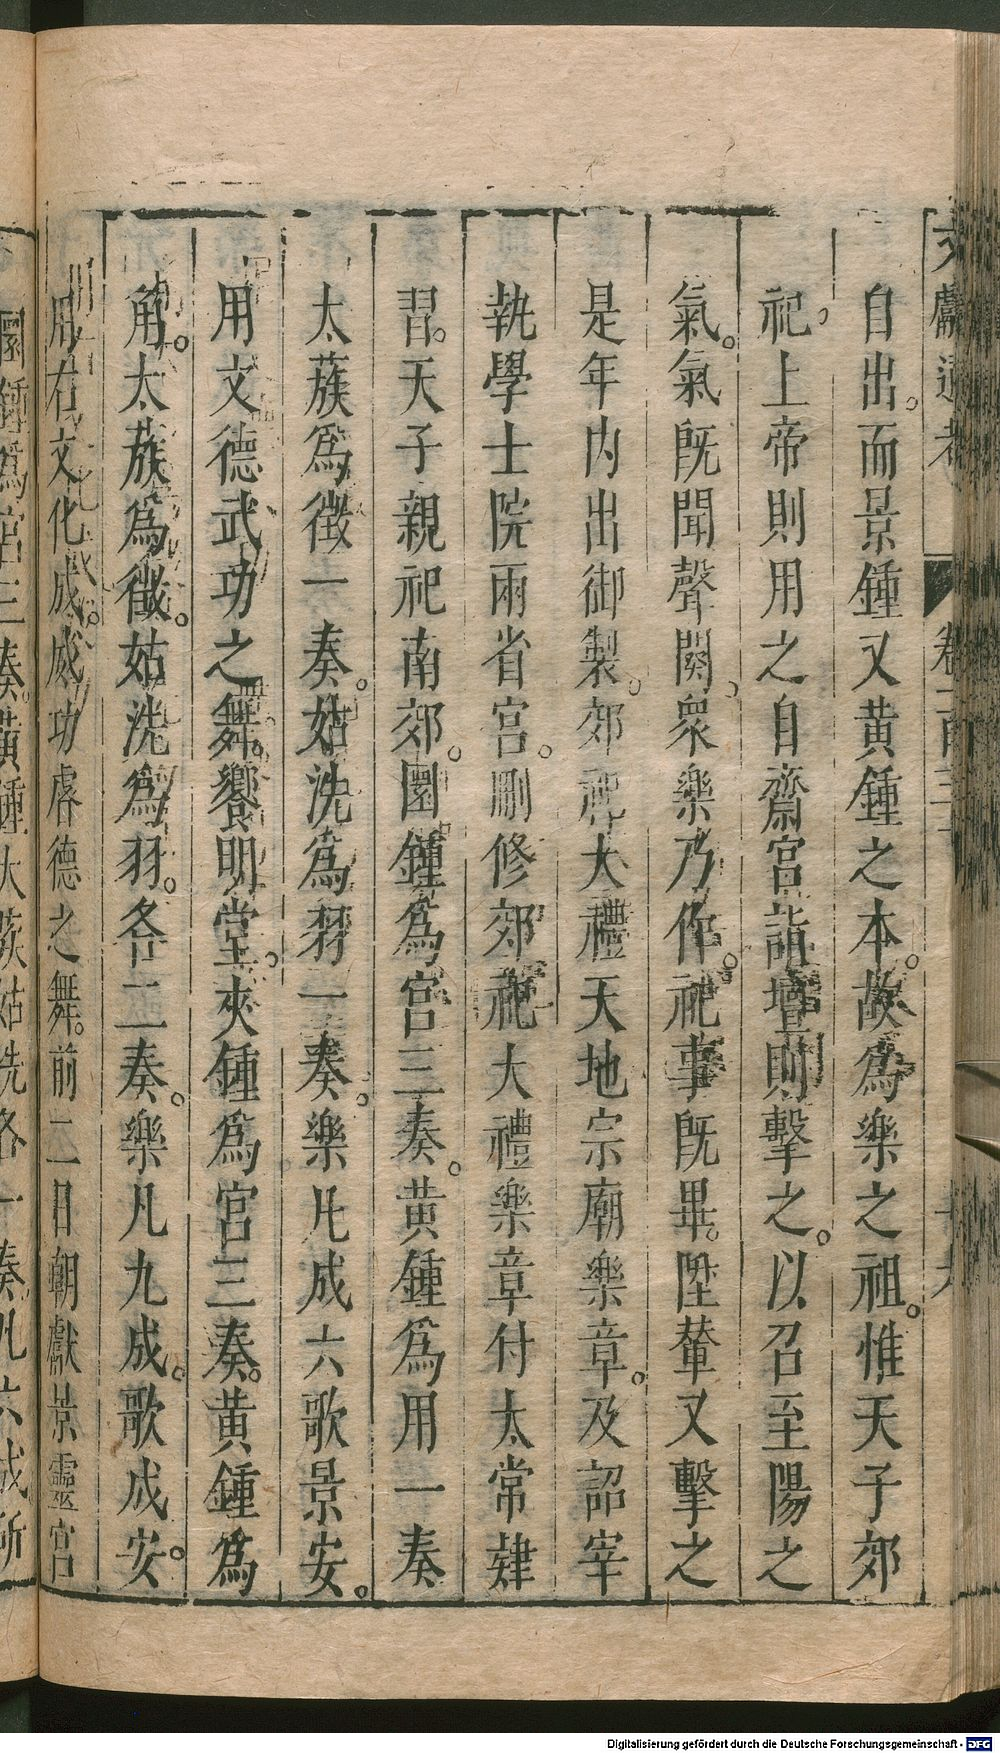 自出。而景鍾又黃鍾之本。故爲樂之祖。惟天子郊
祀。上帝則用之自齋宮詣壇則擊之。以召至陽之
氣。氣旣聞聲闋。衆樂乃作。祀事旣畢。陞輦又擊之
是年內出御製。郊祀大禮天地宗廟樂章。及詔宰
執學士院兩省官。刪修郊祀大禮樂章付太常肄
習。天子親祀南郊。圜鍾爲宮三奏。黃鍾爲用一奏
太蔟爲徵一奏。姑洗爲羽一奏。樂凢成六歌景安。
用文德武功之舞。饗明堂。夾鍾爲宮三奏。黃鍾爲
角。太蔟爲徵。姑洗爲羽。各二奏。樂凡九成。歌成安。
用右文化成。威功睿德之舞。前二日朝獻景靈宮
圜鍾爲宮三奏。黃鍾太蔟姑洗各一奏凡六成所
Digitalisierung gefördert durch die Deutsche Forschungsgemeinschaft - DFG